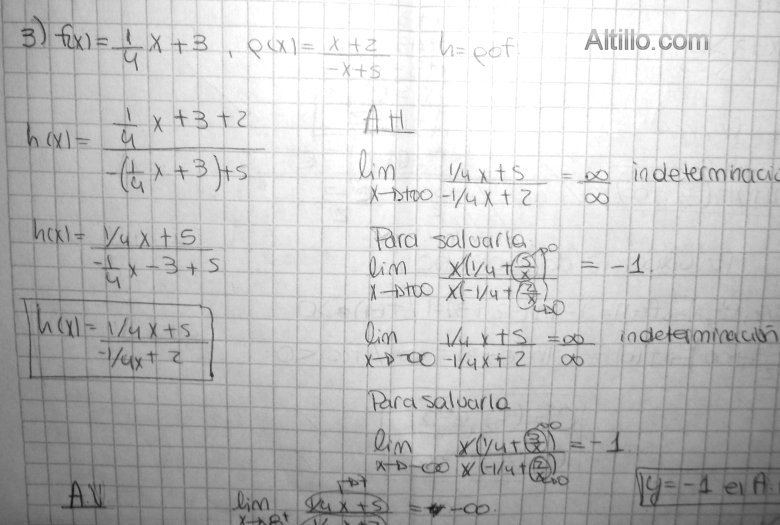 3) f(x) = 1/4 x + 3 , ρ(x) = x+2 / -x+5   h = ρof
Altillo.com
h(x) = 1/4 x + 3 + 2 / -(1/4 x + 3) + 5
h(x) = 1/4 x + 5 / -1/4 x - 3 + 5
h(x) = 1/4 x + 5 / -1/4 x + 2
AH
lim x→+∞ 1/4 x + 5 / -1/4 x + 2 = ∞/∞ indeterminació
Para salvarla
lim x→+∞ x(1/4 + 5/x)→0 / x(-1/4 + 2/x)→0 = -1.
lim x→-∞ 1/4 x + 5 / -1/4 x + 2 = ∞/∞ indeterminación
Para salvarla
lim x→-∞ x(1/4 + 3/x)→0 / x(-1/4 + 2/x)→0 = -1.
y = -1 es A.
AV
lim x→8+ 1/4 x + 5 / = -∞.